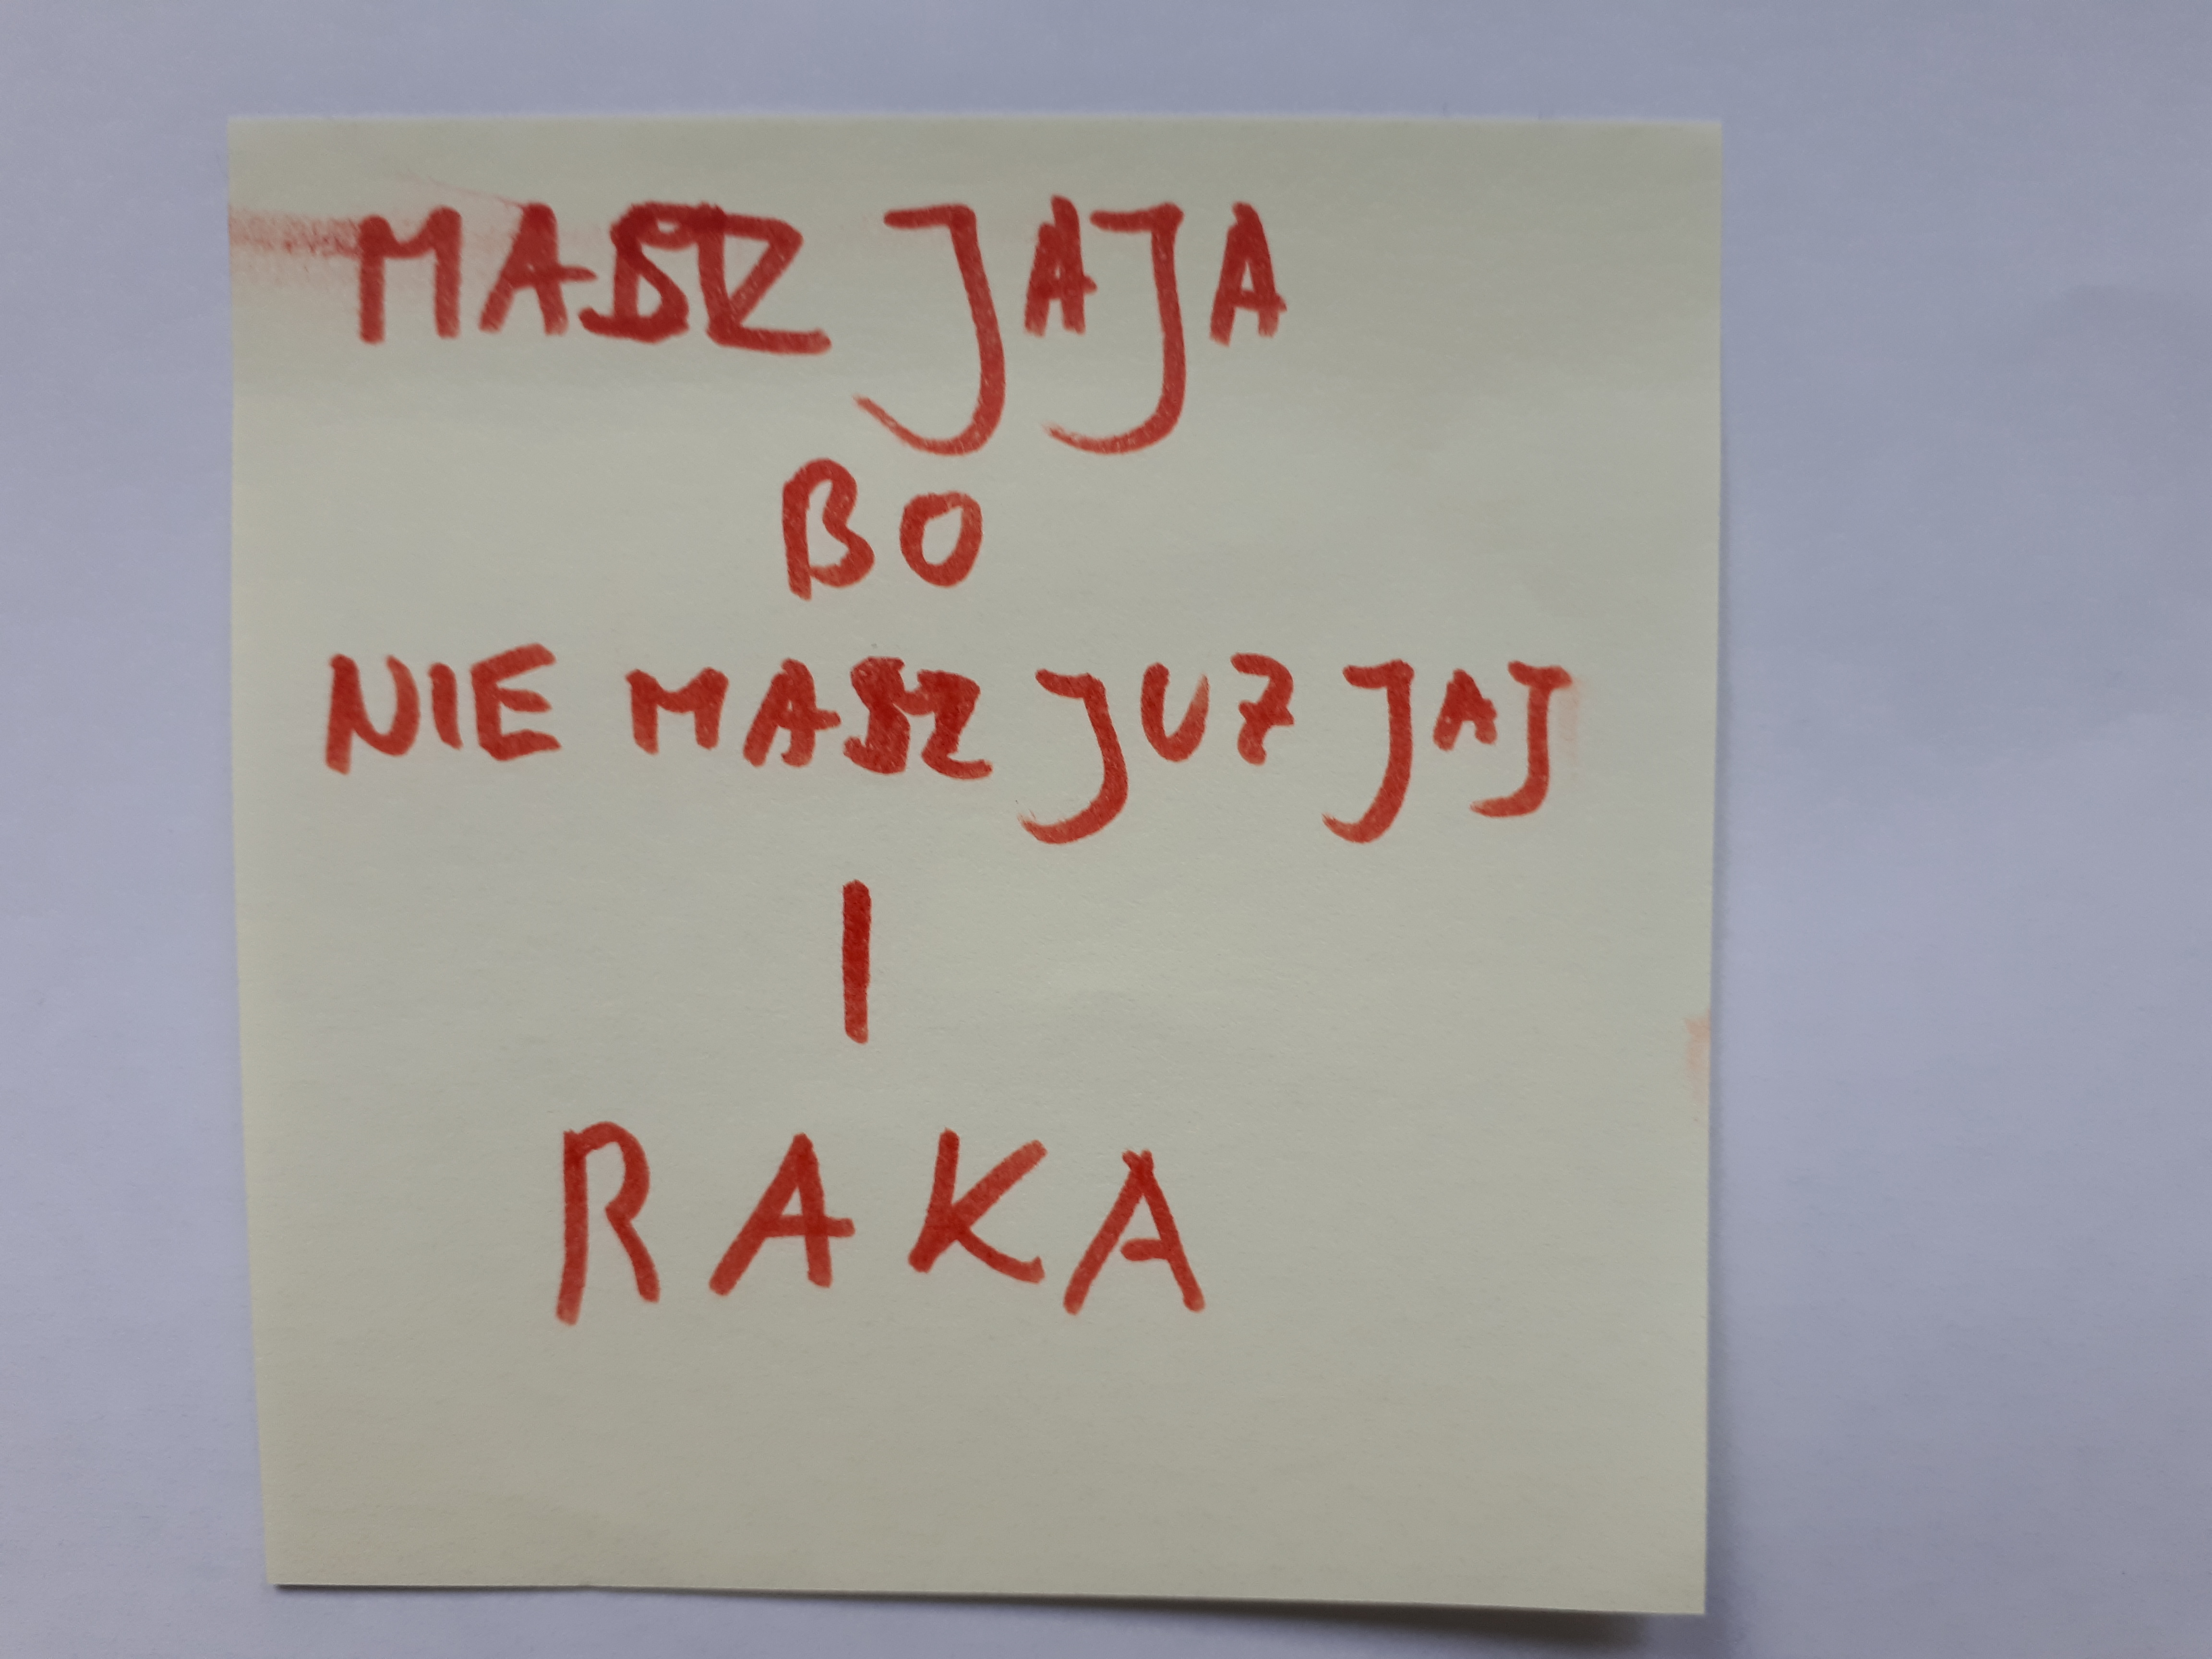 MASZ JAJA
BO
NIE MASZ JUZ JAJ
I
RAKA